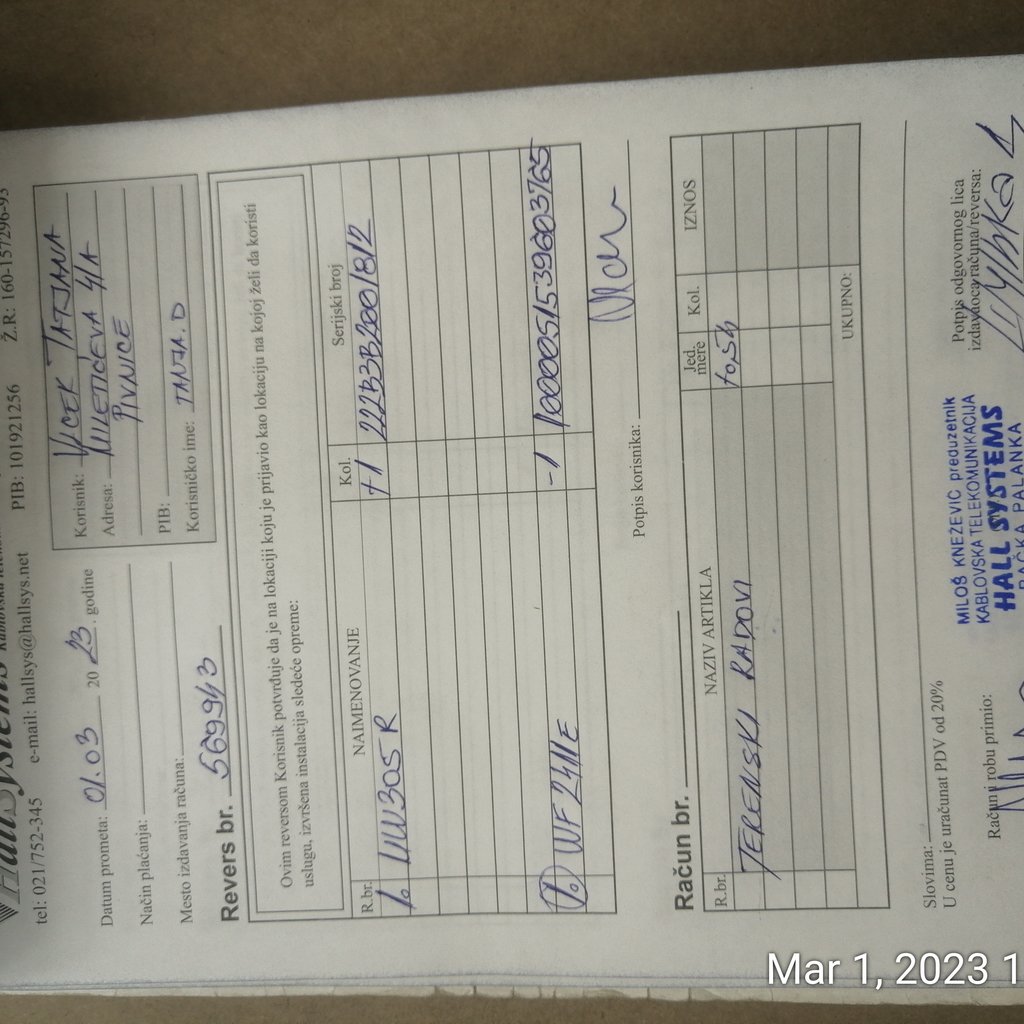 HallSystems
tel: 021/752-345 e-mail: hallsys@hallsys.net PIB: 101921256 Ž.R: 160-157296-93
Datum prometa: 01.03 20 23. godine
Način plaćanja:
Mesto izdavanja računa:
Korisnik: VICEK TATJANA
Adresa: MILETIĆEVA 4/A
PIVNICE
PIB:
Korisničko ime: TANJA.D
Revers br. 569943
Ovim reversom Korisnik potvrđuje da je na lokaciji koju je prijavio kao lokaciju na kojoj želi da koristi
uslugu, izvršena instalacija sledeće opreme:
R.br. NAIMENOVANJE Kol. Serijski broj
1. MW305R +1 222B3B2001812
1. WF2411E -1
Potpis korisnika:
Račun br.
R.br. NAZIV ARTIKLA Jed. mere Kol. IZNOS
TERENSKI RADOVI
UKUPNO:
Slovima:
U cenu je uračunat PDV od 20%
Račun i robu primio:
MILOŠ KNEŽEVIĆ preduzetnik
KABLOVSKA TELEKOMUNIKACIJA
HALL SYSTEMS
BAČKA PALANKA
Potpis odgovornog lica
izdavaoca računa/reversa:
Mar 1, 2023 1